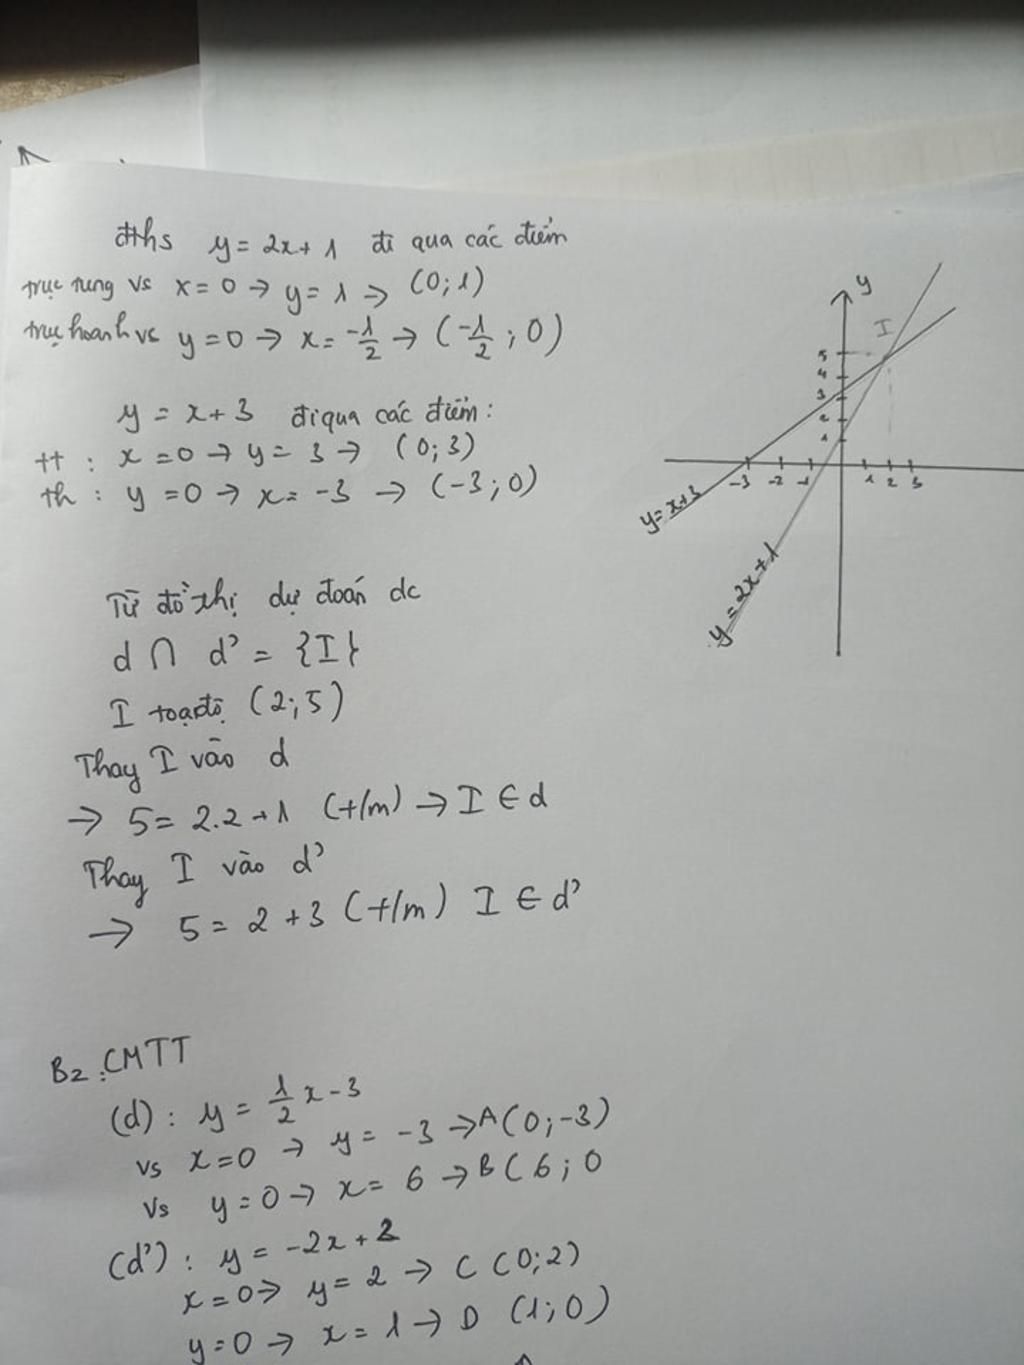 đths y = 2x + 1 đi qua các điểm
trục tung vs x = 0 → y = 1 → (0; 1)
trục hoành vs y = 0 → x = -1/2 → (-1/2 ; 0)
y = x + 3 đi qua các điểm :
tt : x = 0 → y = 3 → (0; 3)
th : y = 0 → x = -3 → (-3 ; 0)
y
I
5
4
3
2
1
-3 -2 -1 1 2 3
y = x+3
y = 2x+1
Từ đồ thị dự đoán dc
d ∩ d' = {I}
I toạ độ (2; 5)
Thay I vào d
→ 5 = 2.2 + 1 (t/m) → I ∈ d
Thay I vào d'
→ 5 = 2 + 3 (t/m) I ∈ d'
B2 : CMTT
(d) : y = 1/2 x - 3
vs x = 0 → y = -3 → A (0; -3)
vs y = 0 → x = 6 → B ( 6 ; 0
(d') : y = -2x + 2
x = 0 → y = 2 → C (0; 2)
y = 0 → x = 1 → D (1; 0)